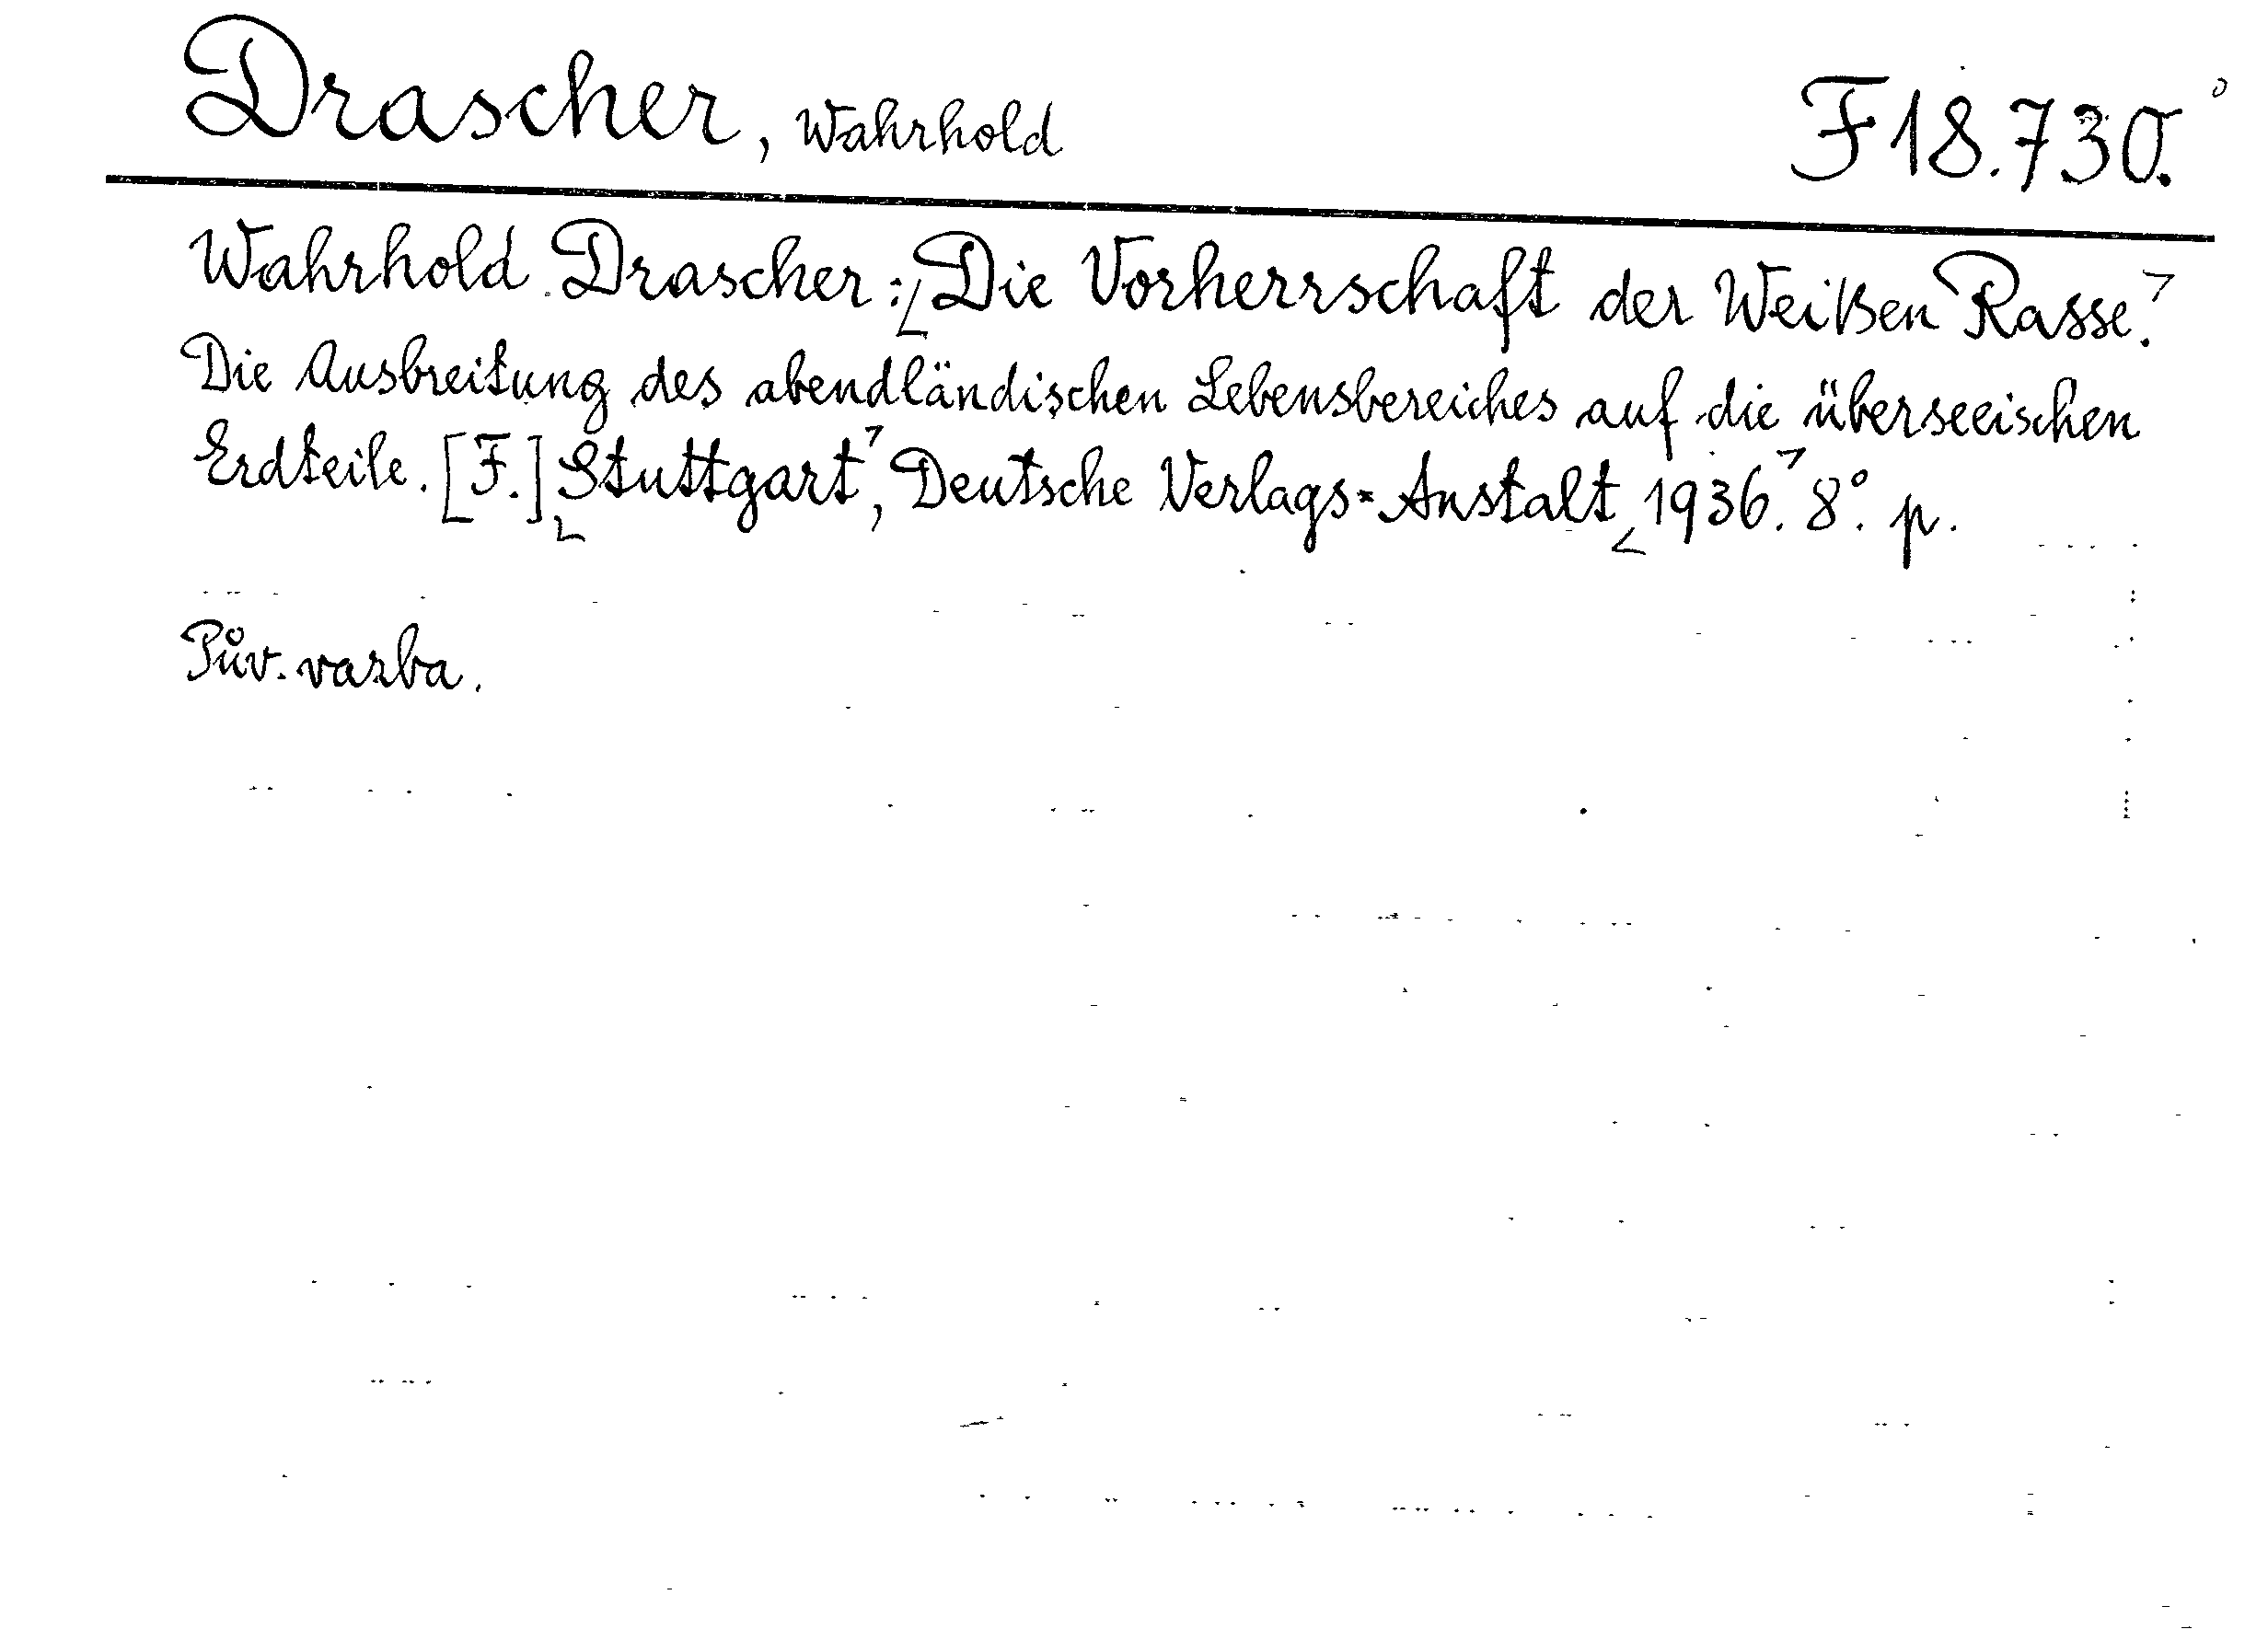 Drascher, Wahrhold F 18.730.
Wahrhold Drascher: Die Vorherrschaft der Weißen Rasse.
Die Ausbreitung des abendländischen Lebensbereiches auf die überseeischen
Erdteile. [F.] Stuttgart, Deutsche Verlags-Anstalt 1936. 8°. p.
Pův. vazba.